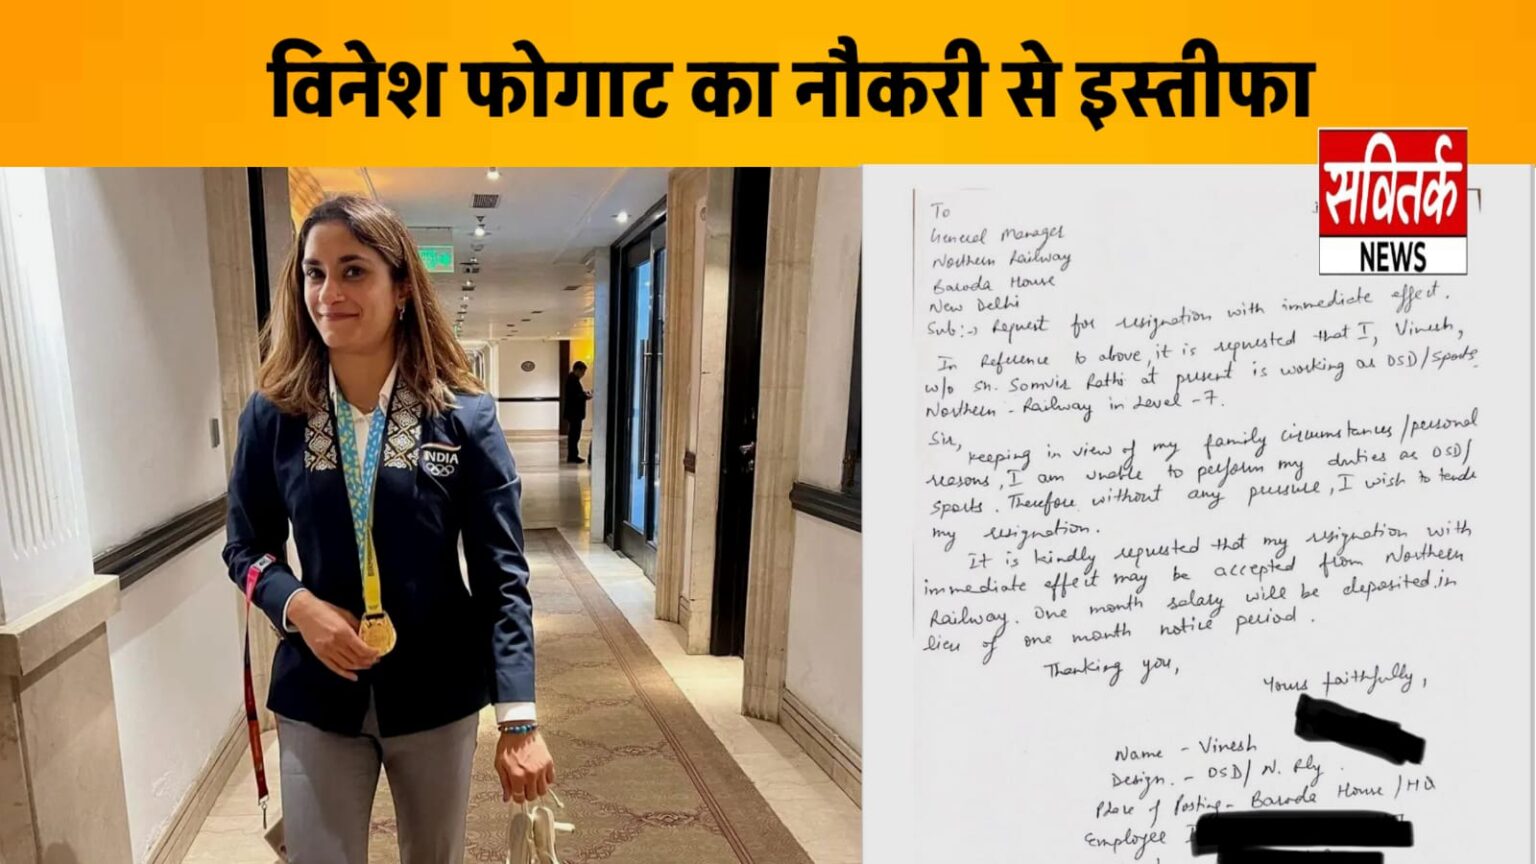 विनेश फोगाट का नौकरी से इस्तीफा
सवितर्क
NEWS
INDIA
To
General Manager
Northern Railway
Baroda House
New Delhi
Sub:-> Request for resignation with immediate effect.
In Reference to above, it is requested that I, Vinesh,
w/o Sh. Somvir Rathi at present is working as OSD/Sports
Northern - Railway in Level -7.
Sir,
keeping in view of my family circumstances/personal
reasons, I am unable to perform my duties as OSD/
Sports. Therefore without any pressure, I wish to tende
my resignation.
It is kindly requested that my resignation with
immediate effect may be accepted from Northern
Railway. One month salary will be deposited in
lieu of one month notice period.
Thanking you,
Yours faithfully,
Name - Vinesh
Design. - OSD/ N. Rly
Place of Posting - Baroda House / HQ
Employee I